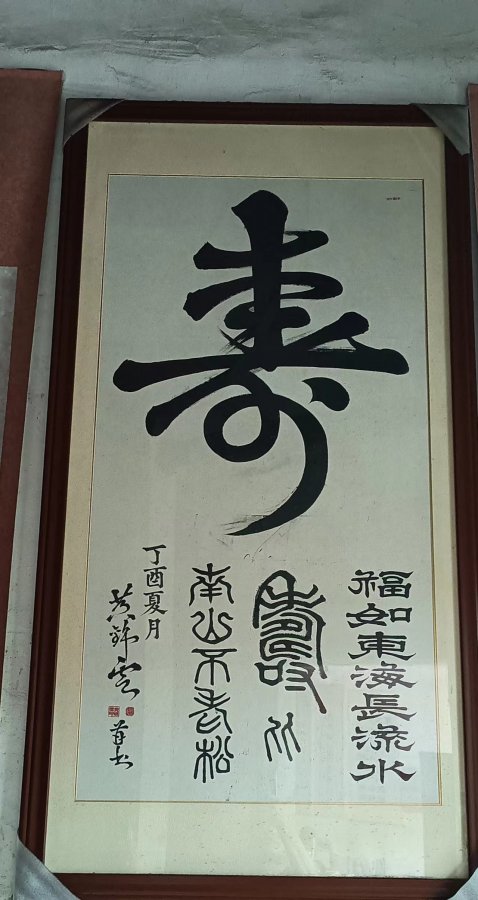 寿
福如東海長流水
壽比
南山不老松
丁酉夏月
锦云